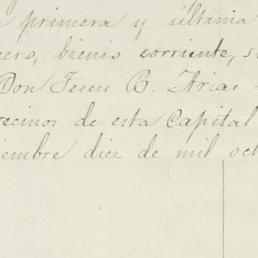 primera y última
bienio corriente, s
Don Jesus B. Arias
vecinos de esta Capital
iembre diez de mil oct